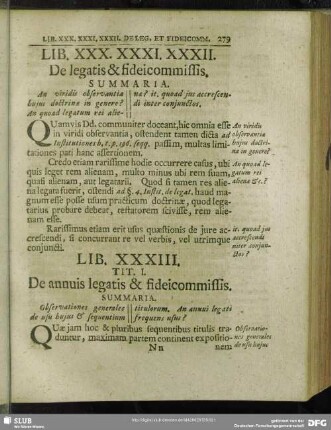 LIB. XXX. XXXI. XXXII. DE LEG. ET FIDEICOMM. 279
LIB. XXX. XXXI. XXXII.
De legatis & fideicommissis.
SUMMARIA.
An viridis observantia
hujus doctrinæ in genere?
An quoad legatum rei alie-
næ? it. quoad jus accrescen-
di inter conjunctos.
QUamvis Dd. communiter doceant, hic omnia esse
in viridi observantia, ostendent tamen dicta ad
Institutiones h. t. p. 198. seqq. passim, multas limi-
tationes pati hanc assertionem.
An viridis
observantia
hujus doctri-
næ in genere?
Credo etiam rarissime hodie occurrere casus, ubi
quis leget rem alienam, multo minus ubi rem suam,
quasi alienam, aut legatarii. Quod si tamen res alie-
na legata fuerit, ostendi ad §. 4. Instit. de legat. haud ma-
gnum esse posse usum practicum doctrinæ, quod lega-
tarius probare debeat, testatorem scivisse, rem alie-
nam esse.
An quoad le-
gatum rei
alienæ &c.?
Rarissimus etiam erit usus quæstionis de jure ac-
crescendi, si concurrant re vel verbis, vel utrimque
conjuncti.
it. quoad jus
accrescendi
inter conjun-
ctos?
LIB. XXXIII.
TIT. I.
De annuis legatis & fideicommissis.
SUMMARIA.
Observationes generales
de usu hujus & sequentium
titulorum. An annui legati
frequens usus?
QUæ jam hoc & pluribus sequentibus titulis tra-
duntur, maximam partem continent expositio-
Observatio-
nes generales
de usu hujus
Nn
nem
SLUB
Wir führen Wissen.
gefördert von der
Deutschen Forschungsgemeinschaft
DFG